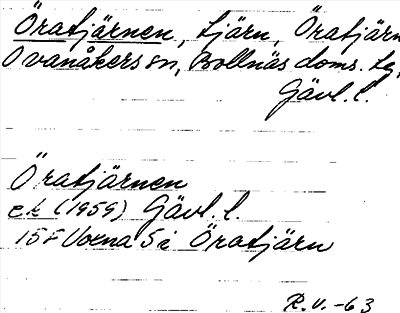 Öratjärnen, tjärn, Öratjärn
Ovanåkers sn, Bollnäs doms. tg,
Gävl. l.
Öratjärnen
ek (1959) Gävl. l.
15F Voxna 5i Öratjärn
R.V. -63